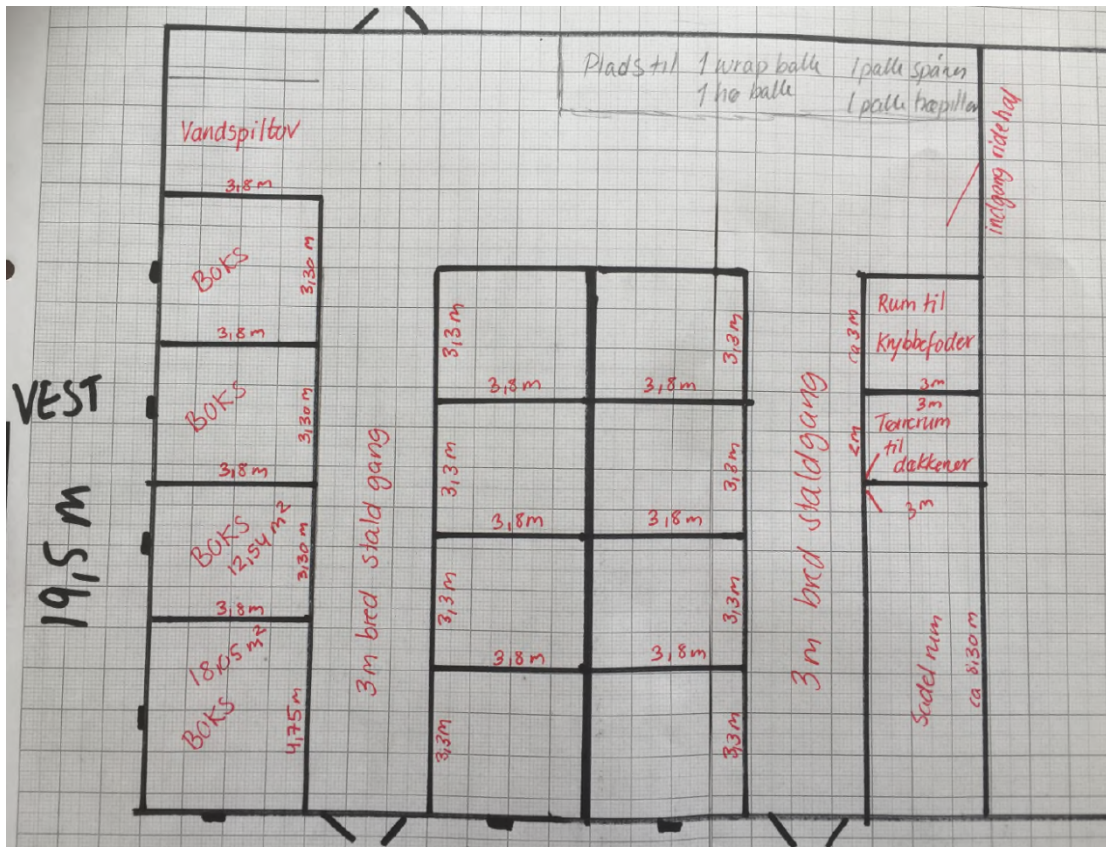 Plads til 1 wrap balle 1 palle spåner
1 hø balle 1 palle træpiller
Vandspiltov
3,8 m
BOKS
3,30 m
3,8 m
BOKS
3,30 m
3,8 m
BOKS
12,54 m²
3,30 m
3,8 m
18,05 m²
BOKS
4,75 m
VEST
19,5 m
3 m bred stald gang
3,3 m
3,8 m
3,3 m
3,8 m
3,3 m
3,8 m
3,3 m
3,3 m
3,8 m
3,3 m
3,8 m
3,3 m
3,8 m
3,3 m
3 m bred staldgang
indgang ridehal
Rum til
Krybbefoder
ca 3 m
3 m
3 m
Tørrerum
til
dækkener
2 m
3 m
Sadel rum
ca 8,30 m